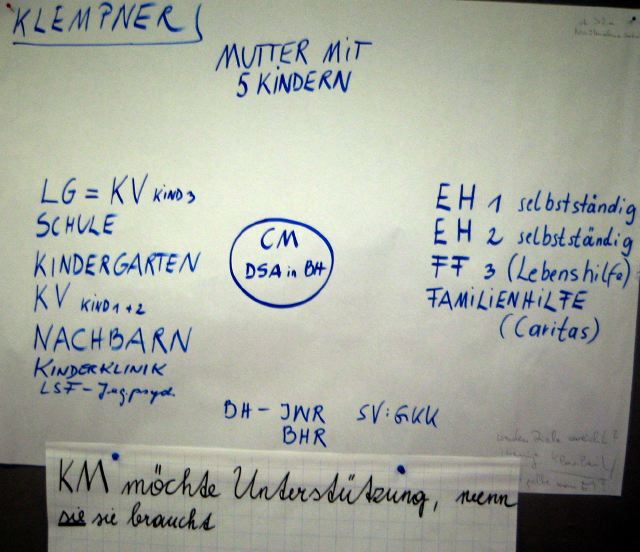 KLEMPNER
MUTTER MIT
5 KINDERN
LG = KV KIND 3
SCHULE
KINDERGARTEN
KV KIND 1+2
NACHBARN
KINDERKLINIK
LSF - Jugpsyd.
CM
DSA in BH
EH 1 selbstständig
EH 2 selbstständig
FF 3 (Lebenshilfe)
FAMILIENHILFE
(Caritas)
BH - JWR SV: GKK
BHR
KM möchte Unterstützung, wenn
sie sie braucht